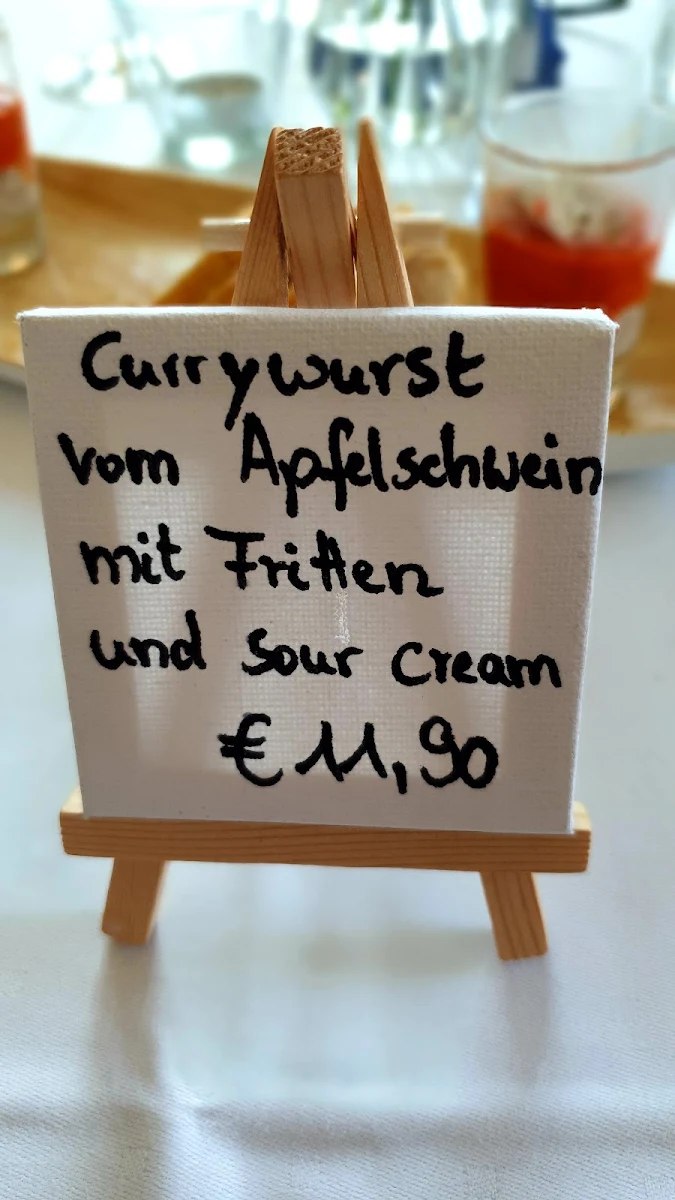 Currywurst
vom Apfelschwein
mit Fritten
und Sour Cream
€ 11,90